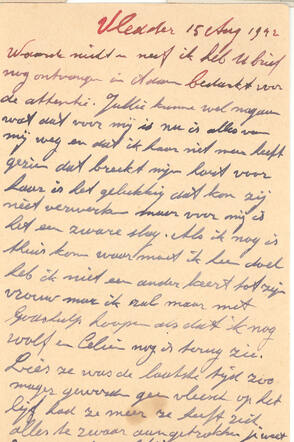 Vledder 15 Aug 1942
Waarde nicht en neef ik heb U brief
nog ontvangen in Adam bedankt voor
de attentie. Jullie kunne wel nagaan
wat dat voor mij is nu is alles van
mij weg en dat ik haar niet meer heeft
gezien dat breekt mijn hart voor
haar is het gelukkig dat kon zij
niet verwerken maar voor mij is
het een zware slag. Als ik nog is
thuis kom waar moet ik heen doel
heb ik niet een ander keert tot zijn
vrouw mar ik zal maar met
Godshulp hoopen als dat ik nog
Wolf en Celien nog is terug zie.
Lies ze was de laatste tijd zoo
mager geworden geen vleesch op het
lijf had ze meer ze heeft zich
alles te zwaar aangetrokken je weet